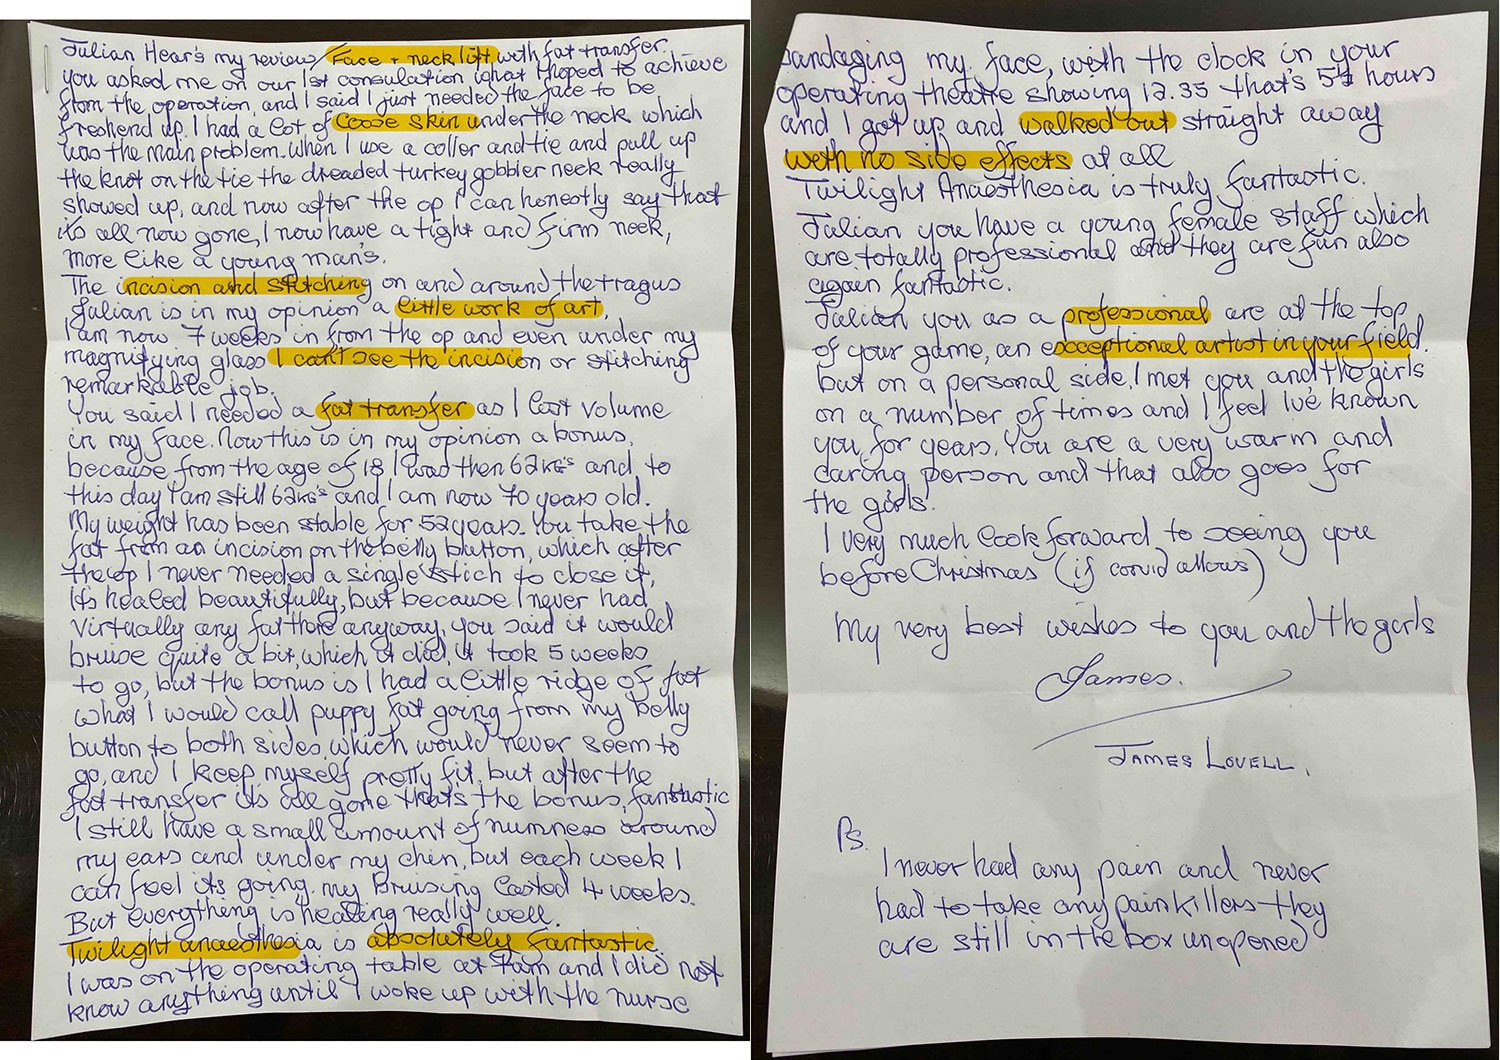 Julian Hear's my review, Face + neck lift with fat transfer.
you asked me on our 1st consulation what I hoped to achieve
from the operation, and I said I just needed the face to be
freshend up. I had a lot of loose skin under the neck which
was the main problem. When I use a coller and tie and pull up
the knot on the tie the dreaded turkey gobbler neck really
showed up, and now after the op I can honestly say that
it's all now gone, I now have a tight and firm neck,
more like a young man's.
The incision and stitching on and around the tragus
Julian is in my opinion a little work of art,
I am now 7 weeks in from the op and even under my
magnifying glass I can't see the incision or stitching
remarkable job.
You said I needed a fat transfer as I lost volume
in my face. Now this is in my opinion a bonus,
because from the age of 18 I was then 62kg's and to
this day I am still 62kg's and I am now 70 years old.
My weight has been stable for 52 years. You take the
fat from an incision on the belly button, which after
the op I never needed a single stich to close it,
it's healed beautifully, but because I never had
virtually any fat there anyway, you said it would
bruise quite a bit, which it did, it took 5 weeks
to go, but the bonus is I had a little ridge of fat
what I would call puppy fat going from my belly
button to both sides, which would never seem to
go, and I keep myself pretty fit, but after the
fat transfer it's all gone that's the bonus, fantastic
I still have a small amount of numness around
my ears and under my chin, but each week I
can feel it's going. my Bruising lasted 4 weeks.
But everything is healing really well.
Twilight anaesthesia is absolutely fantastic.
I was on the operating table at 7am and I did not
know anything until I woke up with the nurse
bandaging my face, with the clock in your
operating theatre showing 12.35 that's 5½ hours
and I got up and walked out straight away
with no side effects at all
Twilight Anaesthesia is truly fantastic.
Julian you have a young female staff which
are totally professional and they are fun also
again fantastic.
Julian you as a professional are at the top
of your game, an exceptional artist in your field.
but on a personal side, I met you and the girls
on a number of times and I feel I've known
you for years. You are a very warm and
caring person and that also goes for
the girls.
I very much look forward to seeing you
before Christmas (if corvid allows)
My very best wishes to you and the girls
James.
JAMES LOVELL.
Ps.
I never had any pain and never
had to take any painkillers they
are still in the box unopened